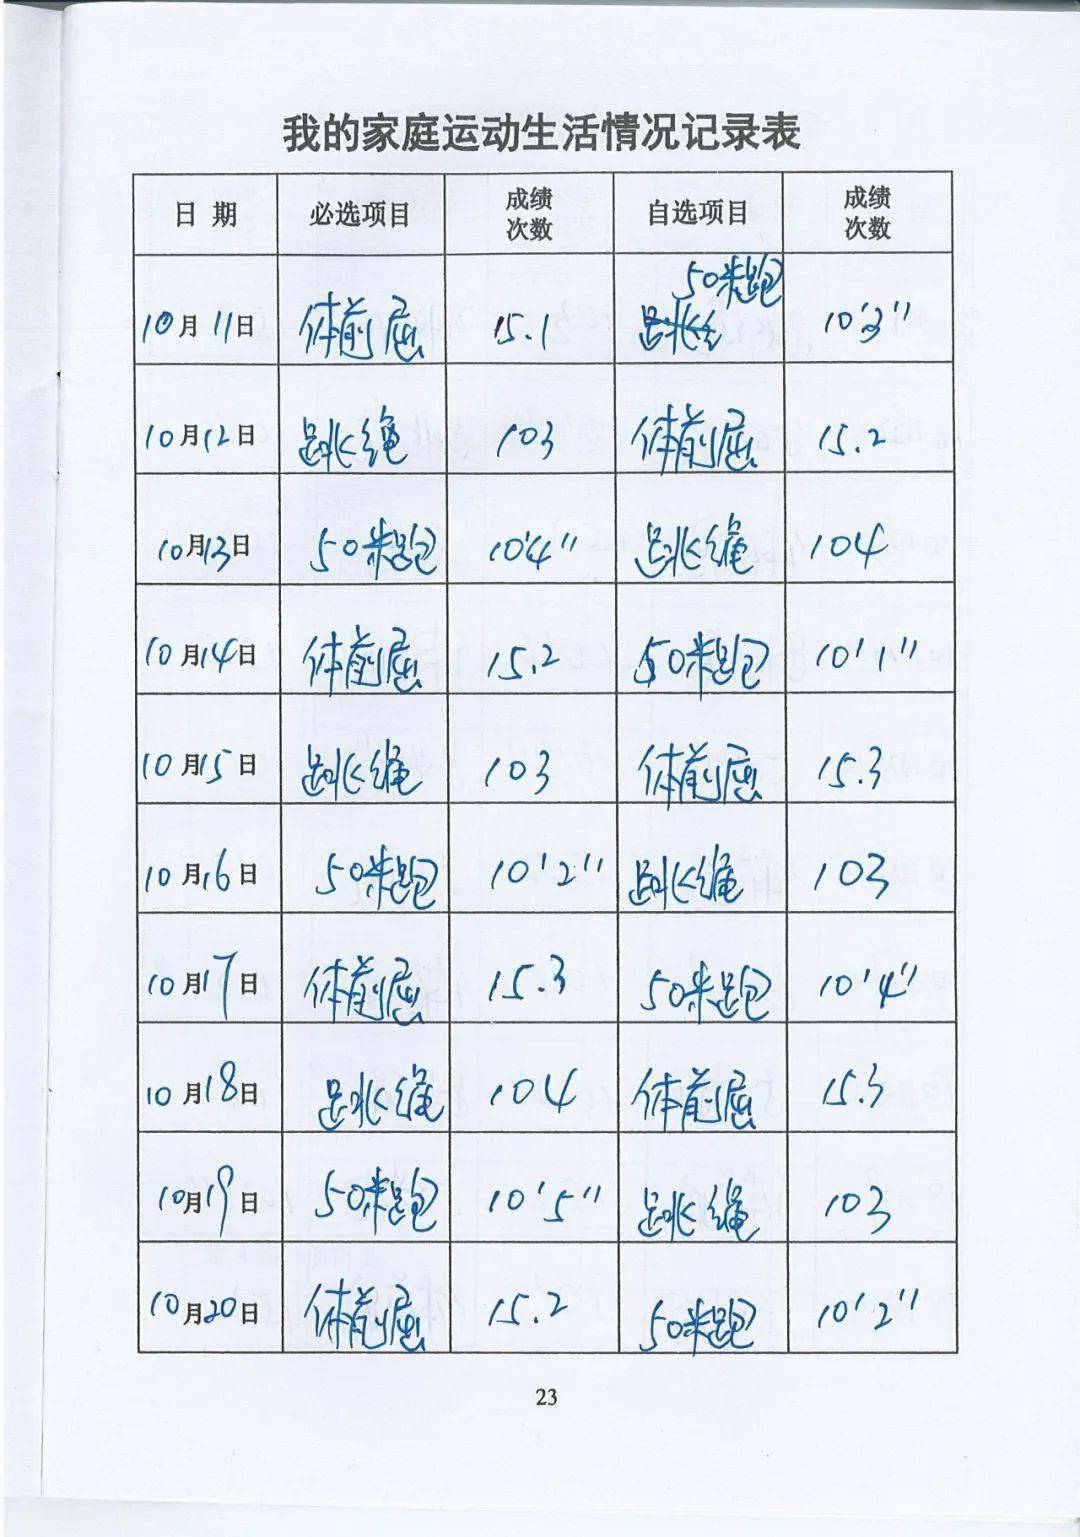 我的家庭运动生活情况记录表
日 期 必选项目 成绩次数 自选项目 成绩次数
50米跑
10月11日 体前屈 15.1 跳绳 10'3"
10月12日 跳绳 103 体前屈 15.2
10月13日 50米跑 10'4" 跳绳 104
10月14日 体前屈 15.2 50米跑 10'1"
10月15日 跳绳 103 体前屈 15.3
10月16日 50米跑 10'2" 跳绳 103
10月17日 体前屈 15.3 50米跑 10'4"
10月18日 跳绳 104 体前屈 15.3
10月19日 50米跑 10'5" 跳绳 103
10月20日 体前屈 15.2 50米跑 10'2"
23